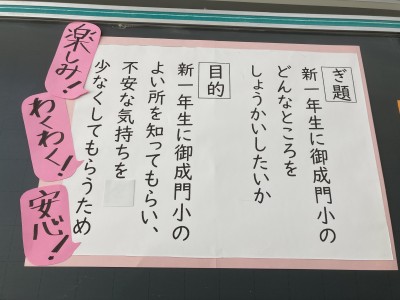 ぎ題
新一年生に御成門小の
どんなところを
しょうかいしたいか
目的
新一年生に御成門小の
よい所を知ってもらい、
不安な気持ちを
少なくしてもらうため
楽しみ!
わくわく!
安心!